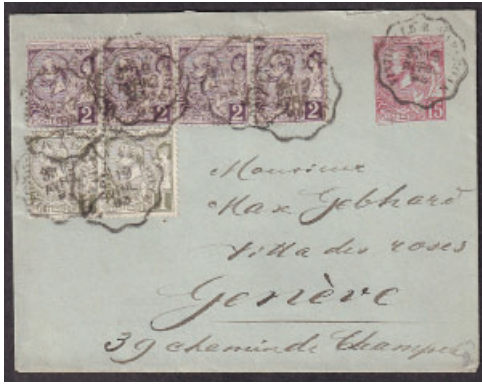 2 2 2 2 15
Monsieur
Max Gebhard
Villa des roses
Genève
39 chemin de Champel